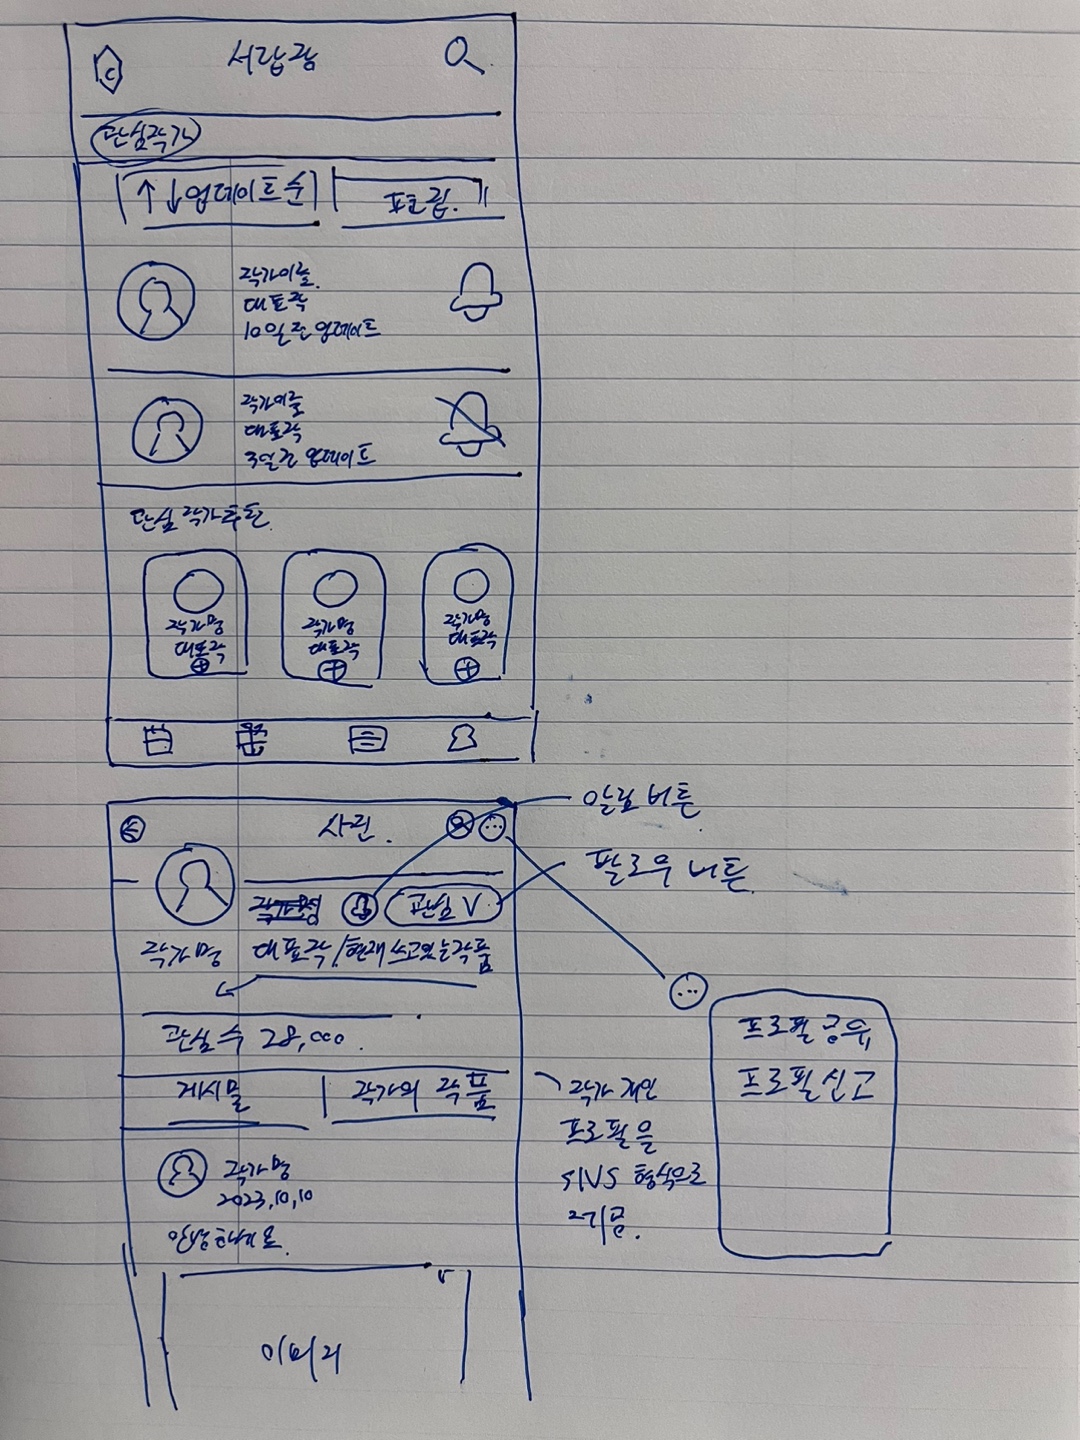 서랍장
관심작가
↑↓업데이트순
작가이름
대표작
10일 전 업데이트
작가이름
대표작
3일 전 업데이트
관심 작가 추천
작가명 작가명 작가명
대표작 대표작 대표작
알림 버튼
팔로우 버튼
관심 V
작가명
대표작/현재 쓰고있는 작품
관심 수 28,000
프로필 공유
프로필 신고
게시물
작가의 작품
작가 개인
프로필을
SNS 형식으로
작가명
2023,10,10
안녕하세요
이미지